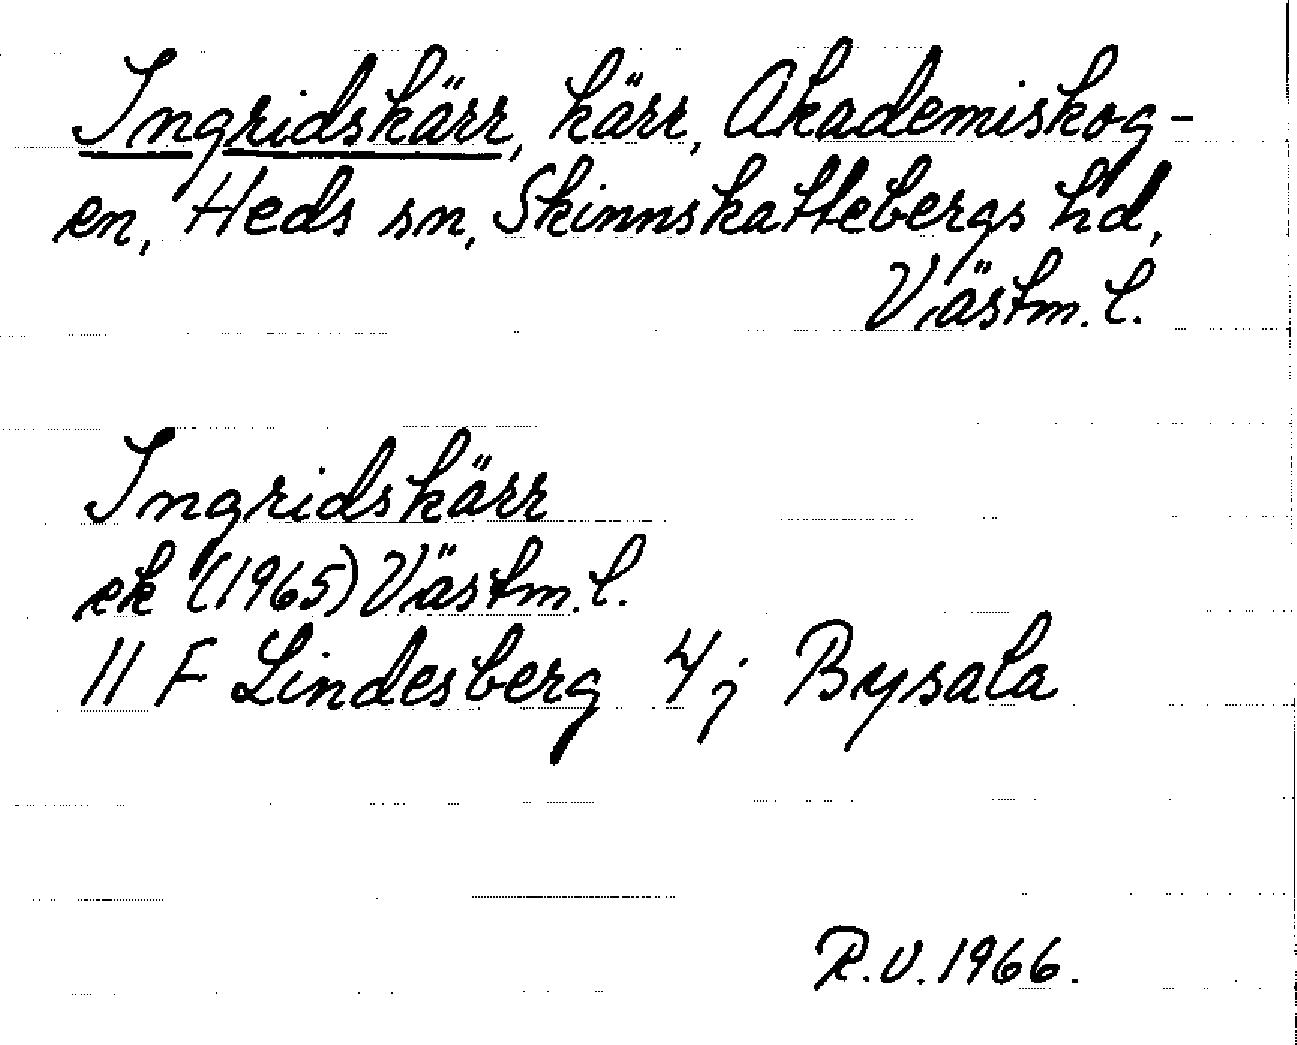 Ingridskärr, kärr, Akademiskog-
en, Heds sn, Skinnskattebergs hd,
Västm. l.
Ingridskärr
ek (1965) Västm. l.
11 F Lindesberg 4j Bysala
R.V. 1966.